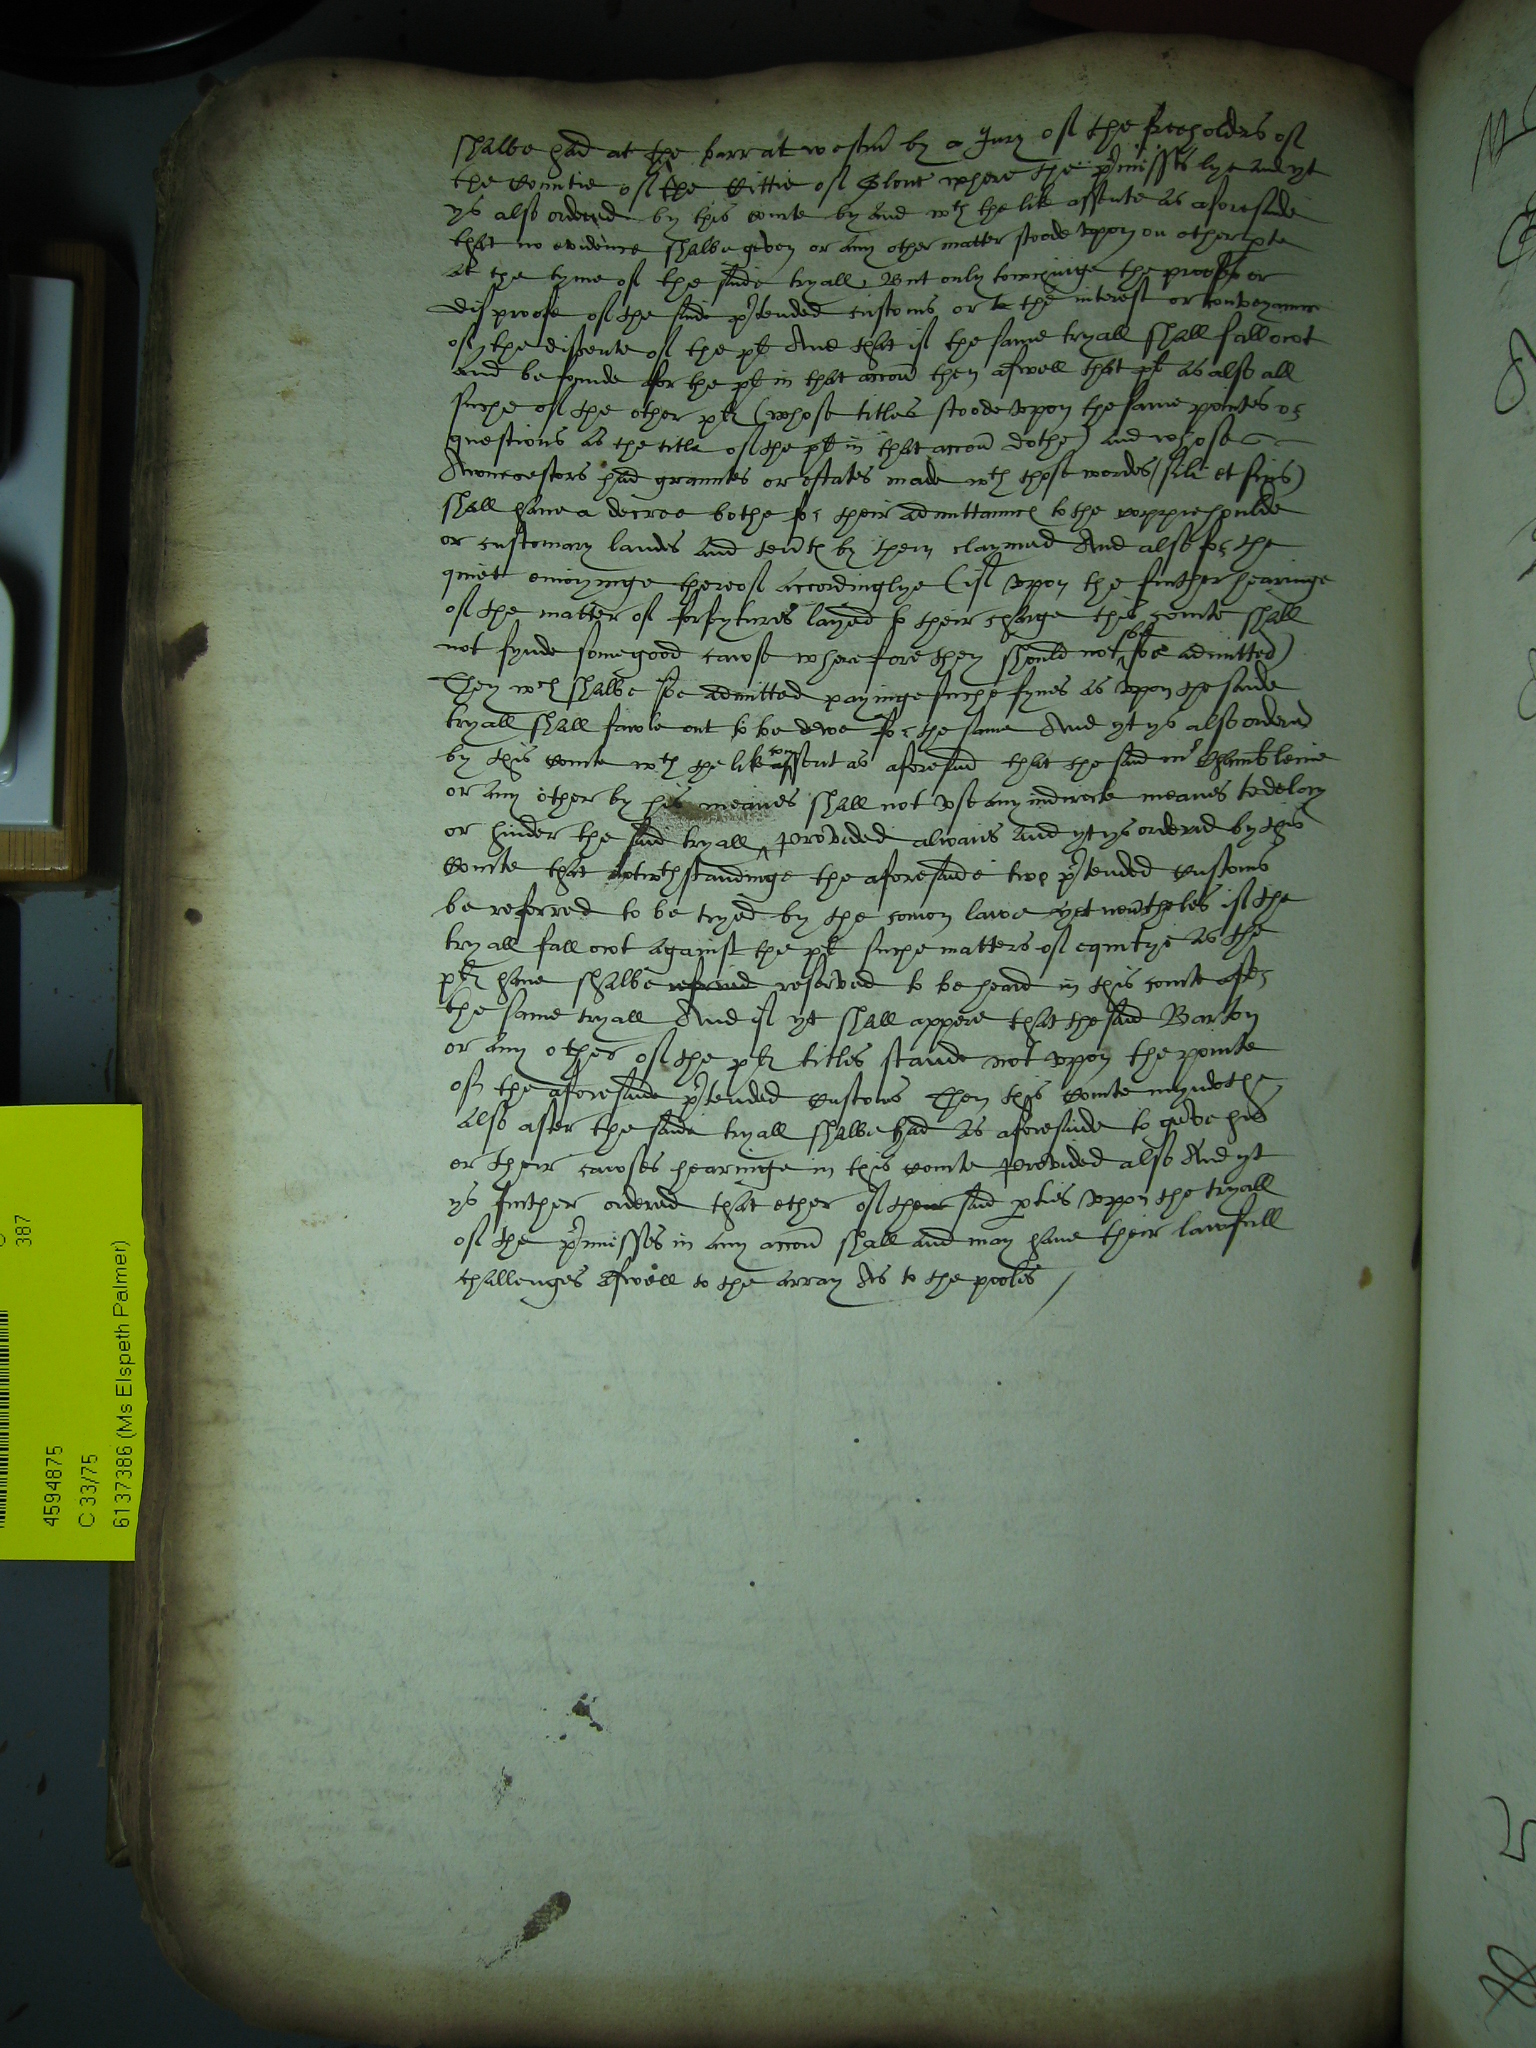 shalbe had at the barr at westm by a Jury of the freeholders of
the Countie of the Cittie of Glouc where the p'misses lye And yt
ys also ordered by this courte by and wth the like assente as aforesaide
that no evidence shalbe geven or any other matter stoode vpon on other pte
at the tyme of the saide tryall But only towchinge the proofe or
disproofe of the said p'tended customs or to the interest or conveyaunce
of the discente of the pl And that if the same tryall shall fall owt
and be founde for the pl in that accon then aswell that pl as also all
suche of the other pls (whose titles stoode vpon the same pointes or
questions as the title of the pl in that accon dothe) and whose
Auncestors had grauntes or estates made wth these wordes (sibi et suis)
shall have a decree bothe for their admittaunce to the coppiehoulde
or customary landes and tents by them claymed And also for the
quiet enioyinge thereof accordinglye (if vpon the further hearinge
of the matter of forfytures layed to their charge this courte shall
not fynde some good cawse wherefore they should not soe be admitted)
They wch shalbe soe admitted payinge suche fynes as vpon the saide
tryall shall fawle out to be dewe for the same And yt ys also ordered
by this courte wth the like consent as aforesaid that the said mr Chamberleine
or any other by his meanes shall not vse any indirecte meanes to delay
or hinder the said tryall provided alwaies and yt ys ordered by this
courte that notwthstandinge the aforesaide two p'tended customs
be referred to be tryed by the comon lawe yet neutheles if the
tryall fall owt against the pl suche matters of equitye as the
pls have shalbe reserved to be heard in this courte after
the same tryall And if yt shall appere that the said Barton
or any other of the pls titles stande not vpon the pointe
of the aforesaide p'tended customs Then this courte myndethe
also after the saide tryall shalbe had as aforesaide to geve his
or their cawses hearinge in this courte provided also And yt
ys further ordered that ether of their said pties vpon the tryall
of the p'misses in any accon shall and may have their lawfull
challenges aswell to the array As to the pooles /
387
4594875
C 33/75
6137386 (Ms Elspeth Palmer)